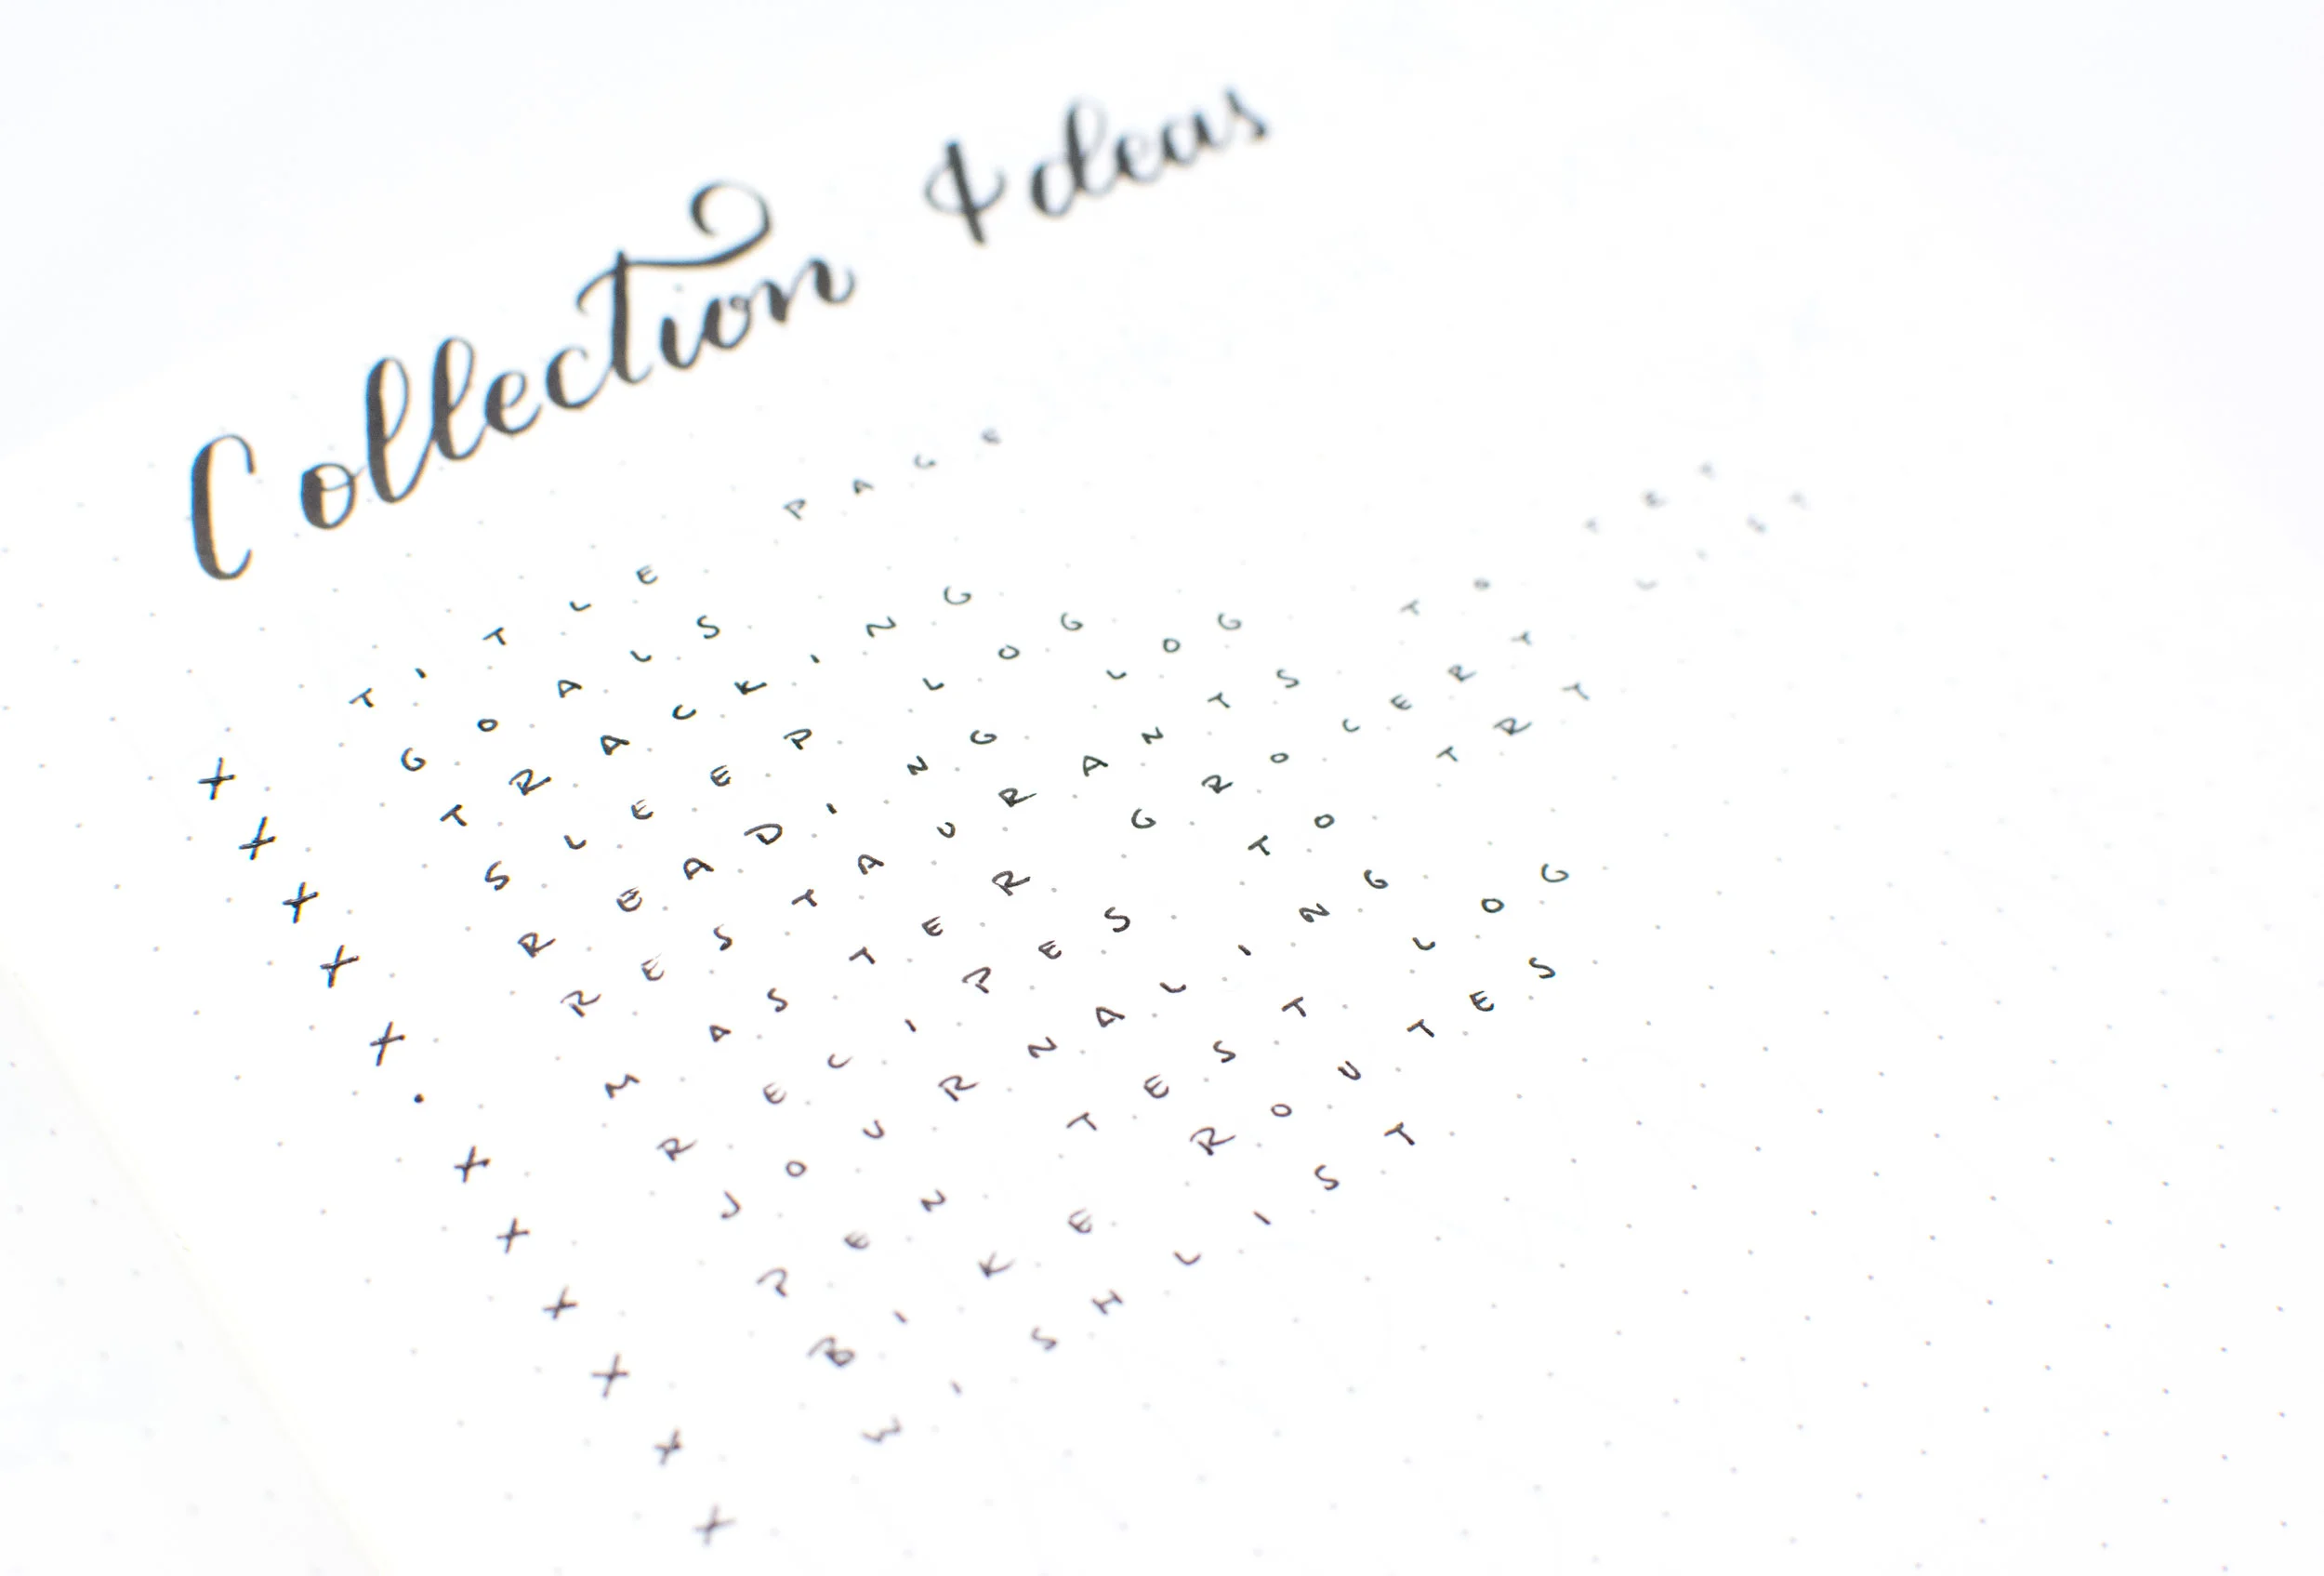 Collection Ideas
X TITLE PAGE
X GOALS
X TRACKING
X SLEEP LOG
X READING LOG
• RESTAURANTS TO TRY
X MASTER GROCERY LIST
X RECIPES TO TRY
X JOURNALING LOG
X PEN TEST
X BIKE ROUTES
X WISH LIST